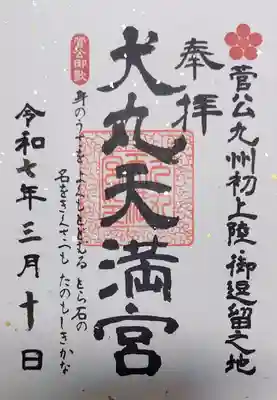 奉拝
菅公九州初上陸・御逗留之地
犬丸天満宮
菅公御歌
身のうさを よくもとどむる とら石の
名をきえてつも たのもしきかな
令和七年三月十日